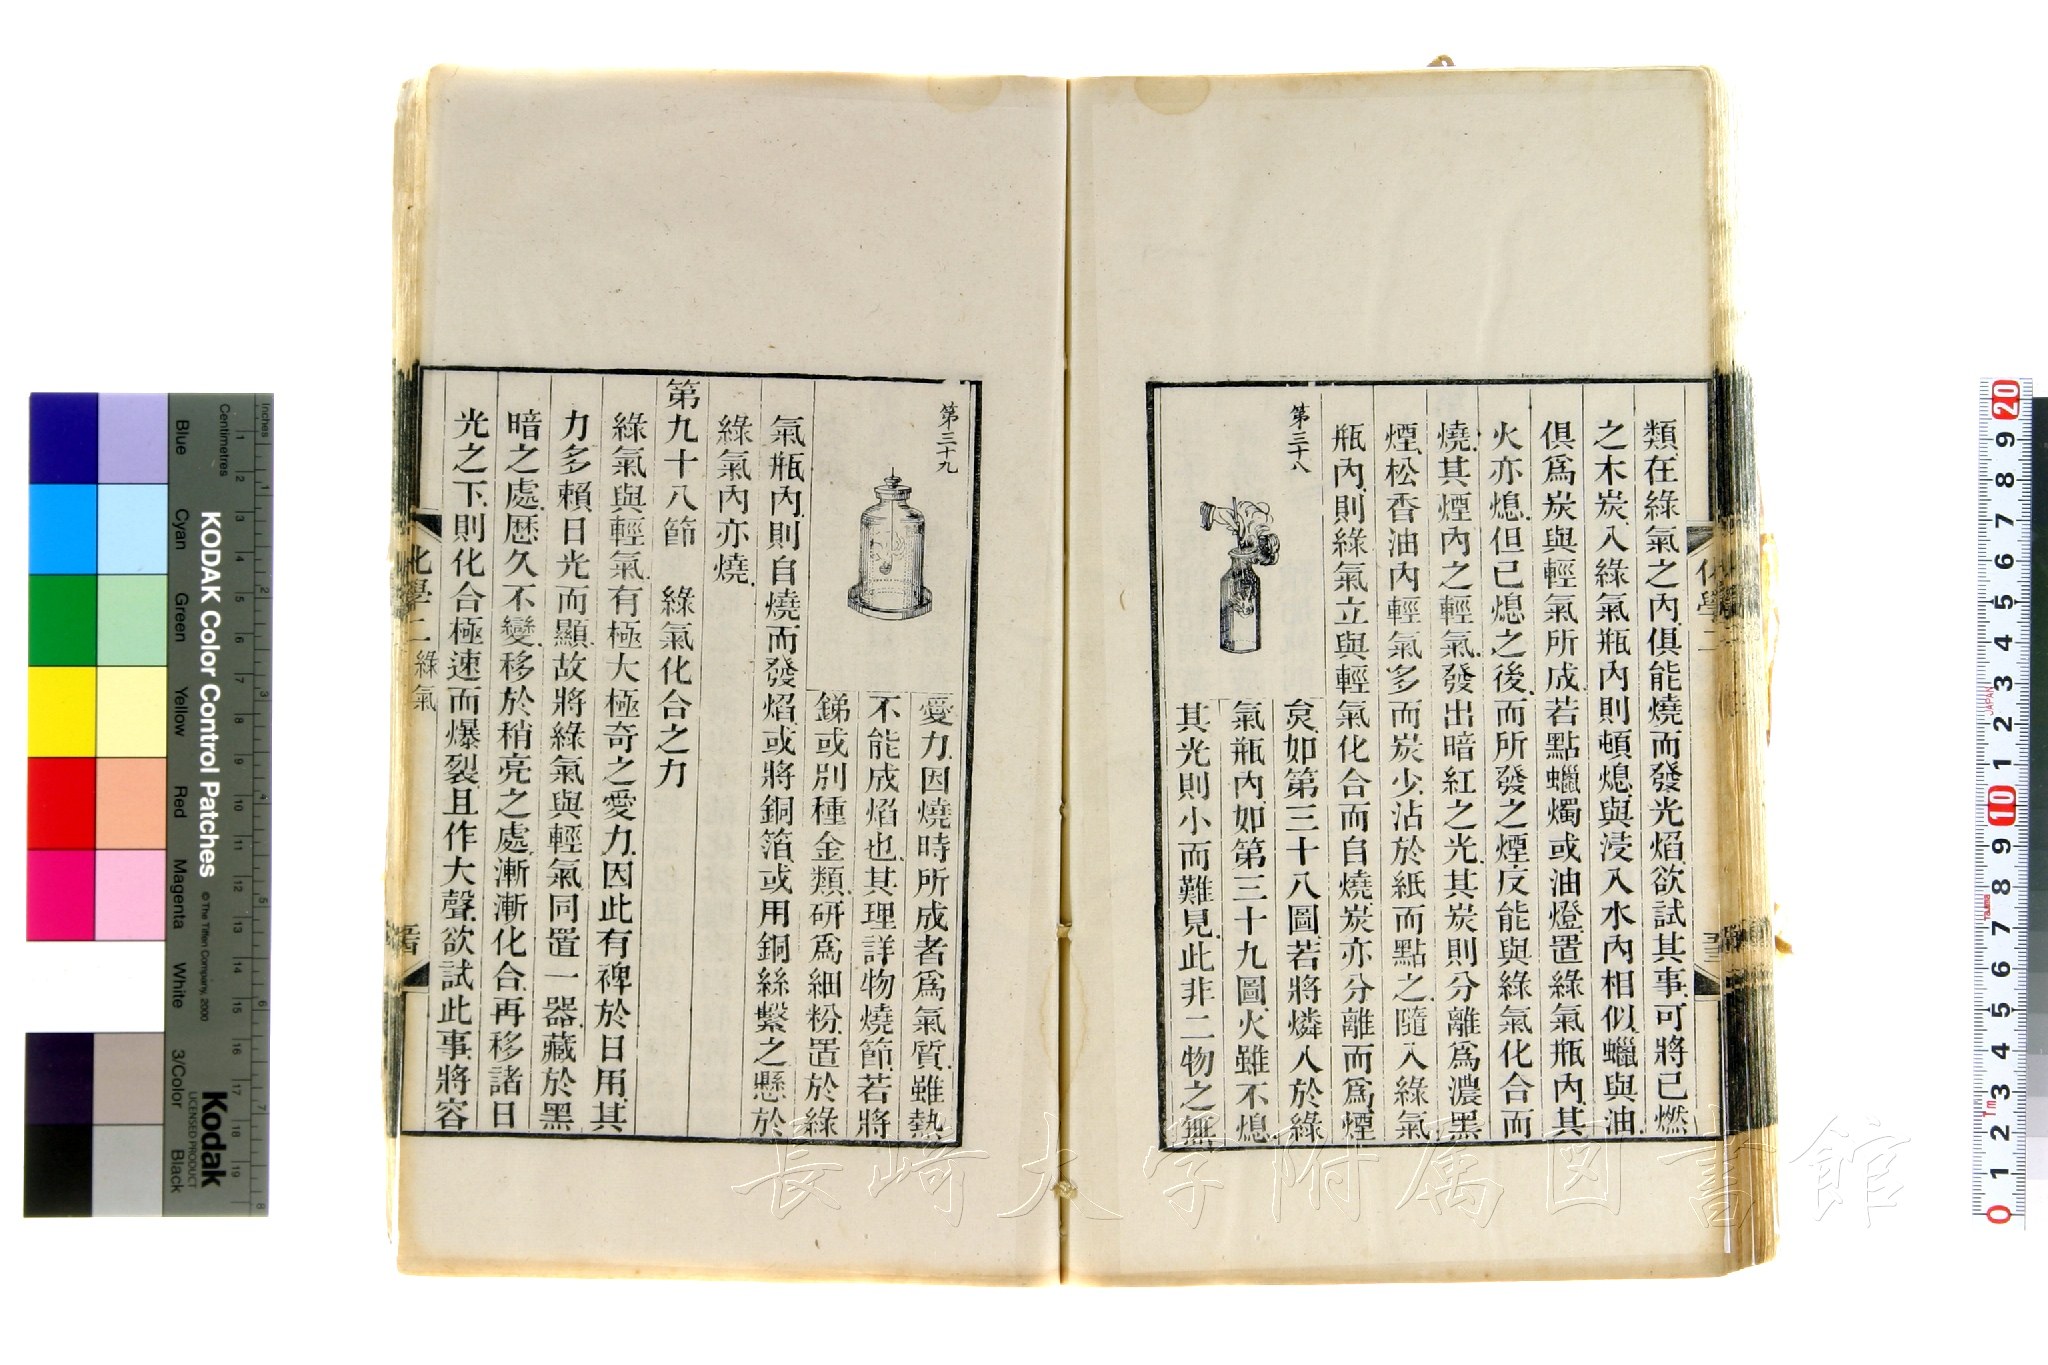 類在綠氣之內俱能燒而發光焰欲試其事可將已燃
之木炭入綠氣瓶內則頓熄與浸入水內相似蠟與油
俱爲炭與輕氣所成若點蠟燭或油燈置綠氣瓶內其
火亦熄但已熄之後而所發之煙反能與綠氣化合而
燒其煙內之輕氣發出暗紅之光其炭則分離爲濃黑
煙松香油內輕氣多而炭少沾於紙而點之隨入綠氣
瓶內則綠氣立與輕氣化合而自燒炭亦分離而爲煙
第三十八
炱如第三十八圖若將燐入於綠
氣瓶內如第三十九圖火雖不熄
其光則小而難見此非二物之無
第三十九
愛力因燒時所成者爲氣質雖熱
不能成焰也其理詳物燒節若將
銻或別種金類研爲細粉置於綠
氣瓶內則自燒而發焰或將銅箔或用銅絲繫之懸於
綠氣內亦燒
第九十八節 綠氣化合之力
綠氣與輕氣有極大極奇之愛力因此有裨於日用其
力多賴日光而顯故將綠氣與輕氣同置一器藏於黑
暗之處歷久不變移於稍亮之處漸漸化合再移諸日
光之下則化合極速而爆裂且作大聲欲試此事將容
化學二 綠氣
長崎大学附属図書館
KODAK Color Control Patches
© The Tiffen Company, 2000
Kodak
LICENSED PRODUCT
Inches
Centimetres
Blue
Cyan
Green
Yellow
Red
Magenta
White
3/Color
Black